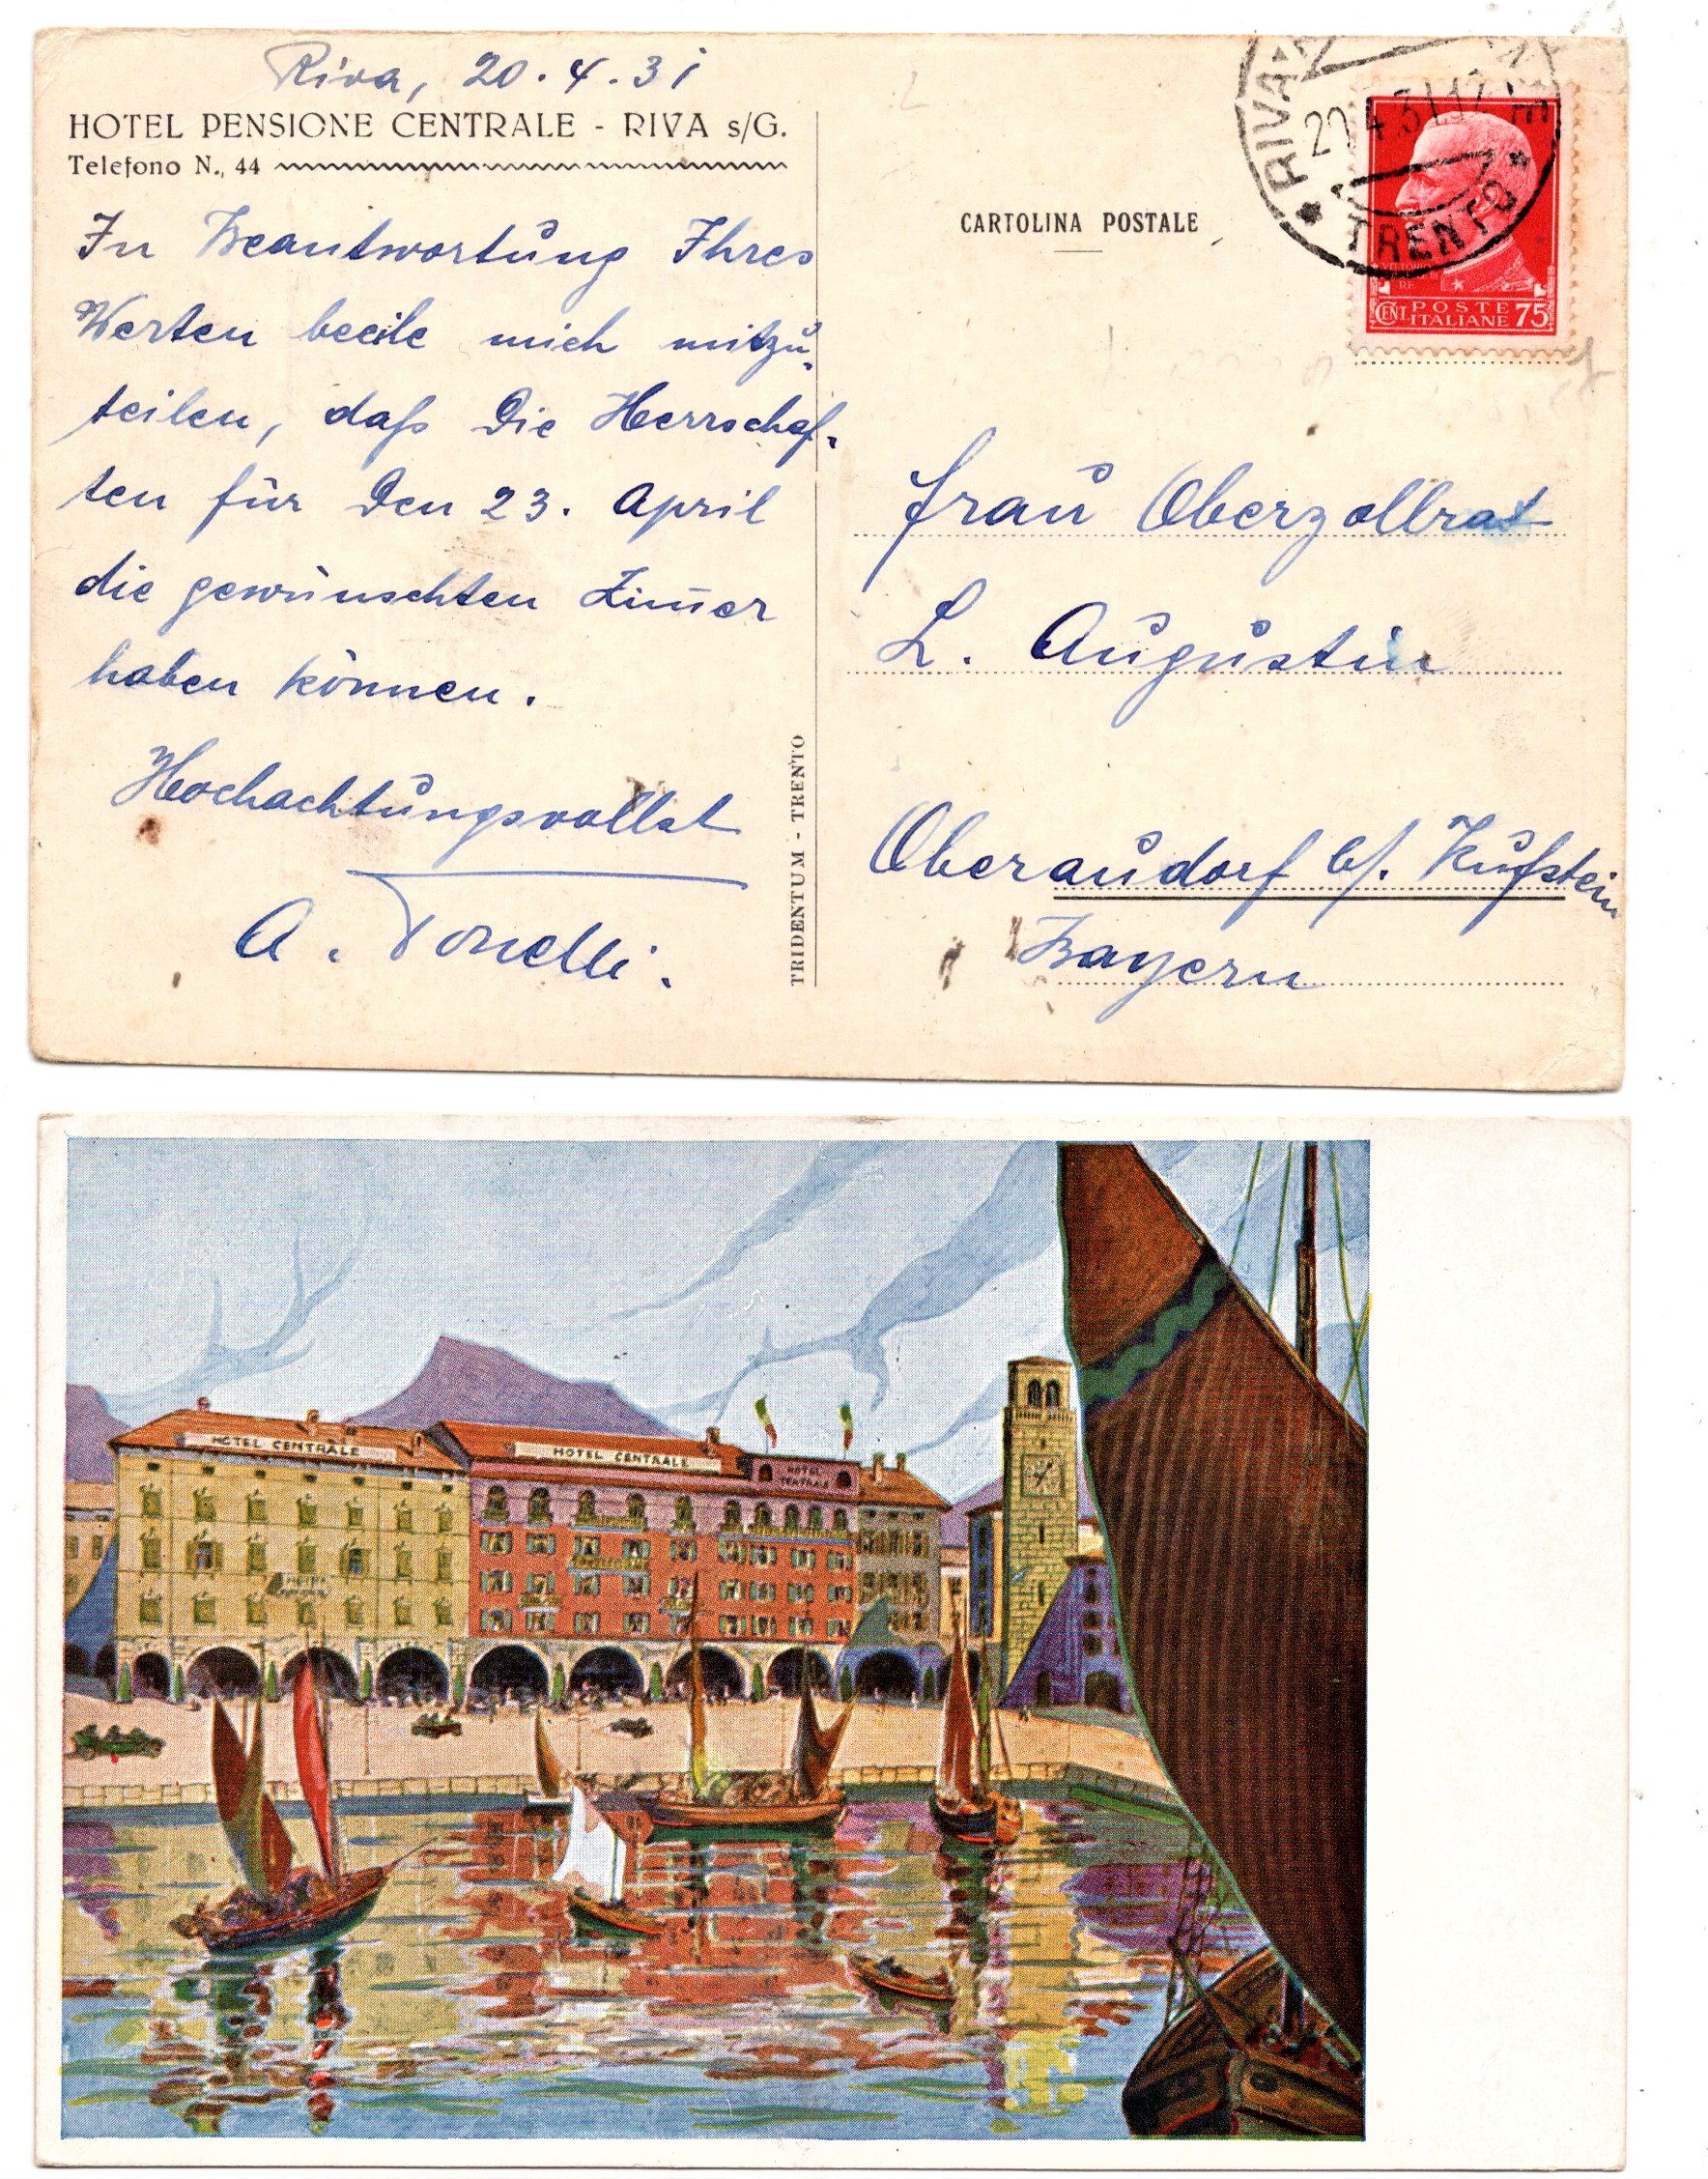 Riva, 20.4.31
HOTEL PENSIONE CENTRALE - RIVA s/G.
Telefono N., 44
In Beantwortung Ihres
Werten beeile mich mitzu-
teilen, daß Die Herrschaf-
ten für Den 23. April
die gewünschten Zim̄er
haben können.
Hochachtungsvollst
A. Tonelli.
TRIDENTUM - TRENTO
CARTOLINA POSTALE
RIVA
20.4.31.17
TRENTO
VITTORIO
RE
CENT. POSTE 75
ITALIANE
Frau Oberzollrat
L. Augustin
Oberaudorf b/. Kufstein
Bayern
HOTEL CENTRALE
HOTEL CENTRALE
HOTEL
CENTRALE